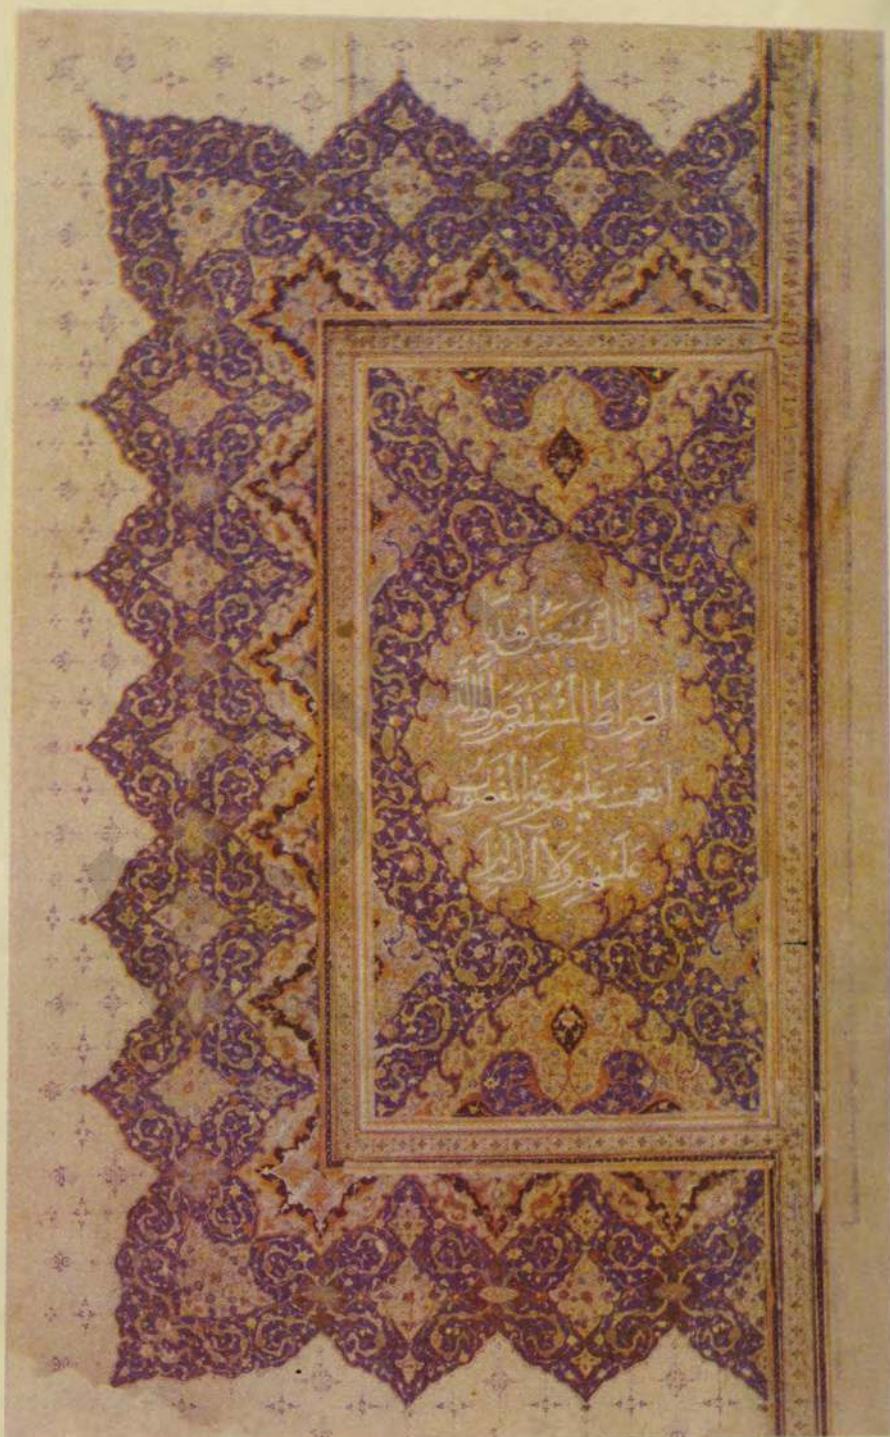 اياك نستعين اهدنا
الصراط المستقيم صراط الذين
انعمت عليهم غير المغضوب
عليهم ولا الضالين